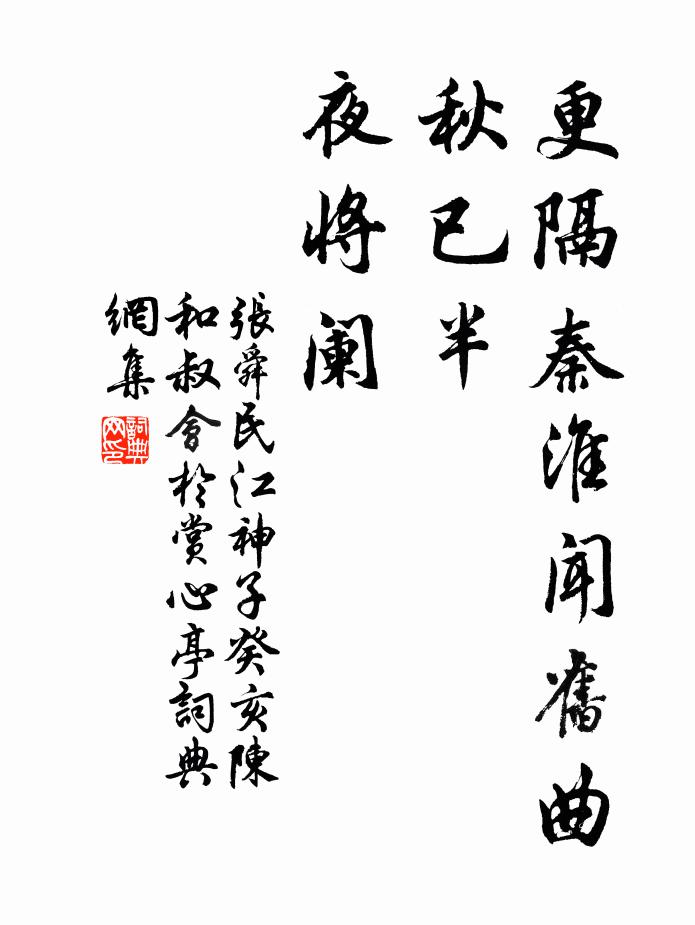 更隔秦淮闻舊曲
秋已半
夜将阑
張舜民江神子癸亥陳
和叔會於賞心亭詞典
網集
詞典
网印